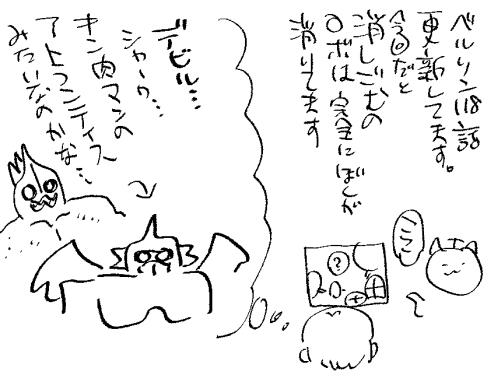 ベルリン118話
更新してます。
今回だと
消しごむの
ロボは完全にぼくが
消してます
ここ
?
デビル…
シャーク…
キン肉マンの
アトランティス
みたいなのかな…